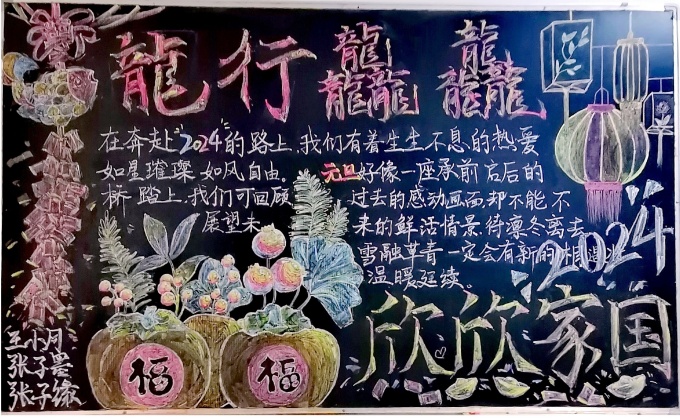 龍行龘龘
在奔赴"2024"的路上、我们有着生生不息的热爱
如星璀璨、如风自由。元旦好像一座承前启后的
桥 踏上、我们可回顾、过去的感动画面却不能不
展望未来的鲜活情景待凛冬离去
雪融草青一定会有新的相逢
温暖延续。
2024
欣欣家国
福 福
王小月
张子墨
张子缘